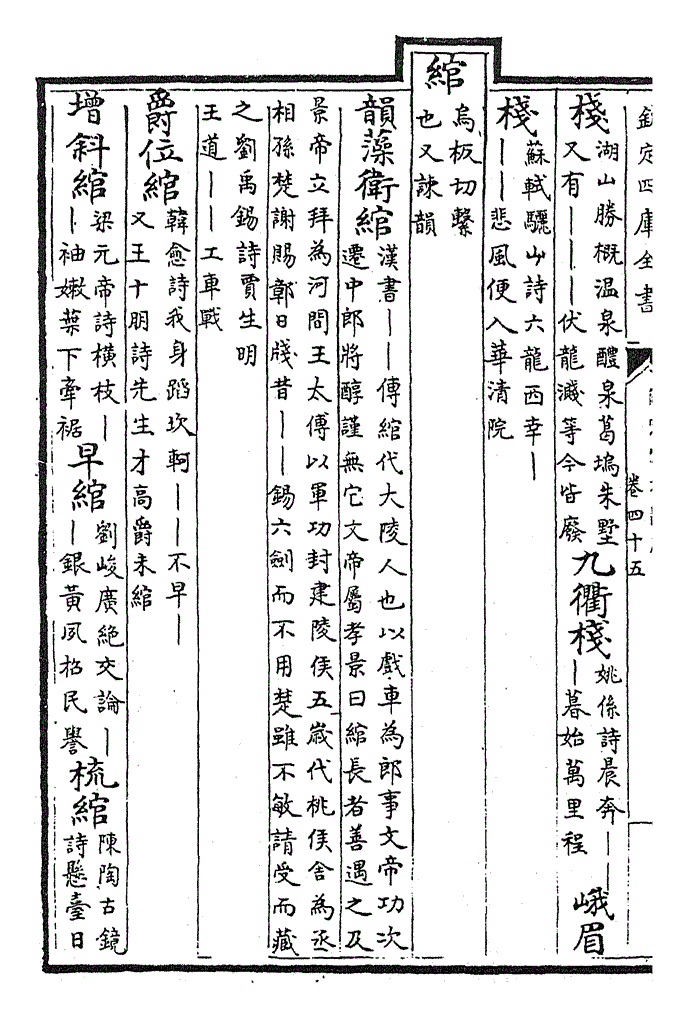 欽定四庫全書
卷四十五
棧
湖山勝概温泉醴泉葛塢朱墅
又有｜｜｜伏龍濺等今皆廢
九衢棧
姚係詩晨奔｜｜
｜暮始萬里程
峨眉
棧
蘇軾驪山詩六龍西幸｜
｜｜悲風便入華清院
綰
烏板切繫
也又諫韻
韻藻衛綰
漢書｜｜傳綰代大陵人也以戲車為郎事文帝功次
遷中郎將醇謹無它文帝屬孝景曰綰長者善遇之及
景帝立拜為河間王太傅以軍功封建陵侯五歲代桃侯舍為丞
相孫楚謝賜鄣日牋昔｜｜錫六劍而不用楚雖不敏請受而藏
之劉禹錫詩賈生明
王道｜｜工車戰
爵位綰
韓愈詩我身蹈坎軻｜｜不早｜
又王十朋詩先生才高爵未綰
增斜綰
梁元帝詩橫枝｜
｜袖嫩葉下牽裾
早綰
劉峻廣絶交論｜
｜銀黃夙招民譽
梳綰
陳陶古鏡
詩懸臺日